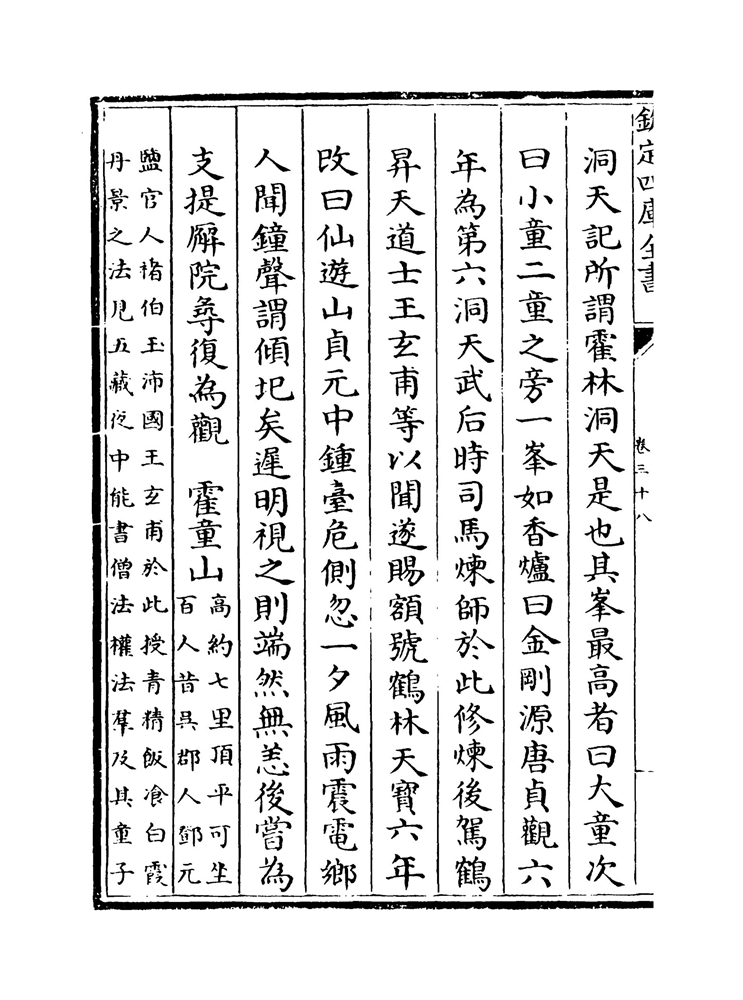 欽定四庫全書
卷三十八
洞天記所謂霍林洞天是也其峯最高者曰大童次
曰小童二童之旁一峯如香爐曰金剛源唐貞觀六
年為第六洞天武后時司馬煉師於此修煉後駕鶴
昇天道士王玄甫等以聞遂賜額號鶴林天寶六年
改曰仙遊山貞元中鍾臺危側忽一夕風雨震電鄉
人聞鐘聲謂傾圮矣遲明視之則端然無恙後嘗為
支提廨院尋復為觀　霍童山高約七里頂平可坐
百人昔吳郡人鄧元
鹽官人褚伯玉沛國王玄甫於此授青精飯飡白霞
丹景之法見五藏夜中能書僧法權法羣及其童子